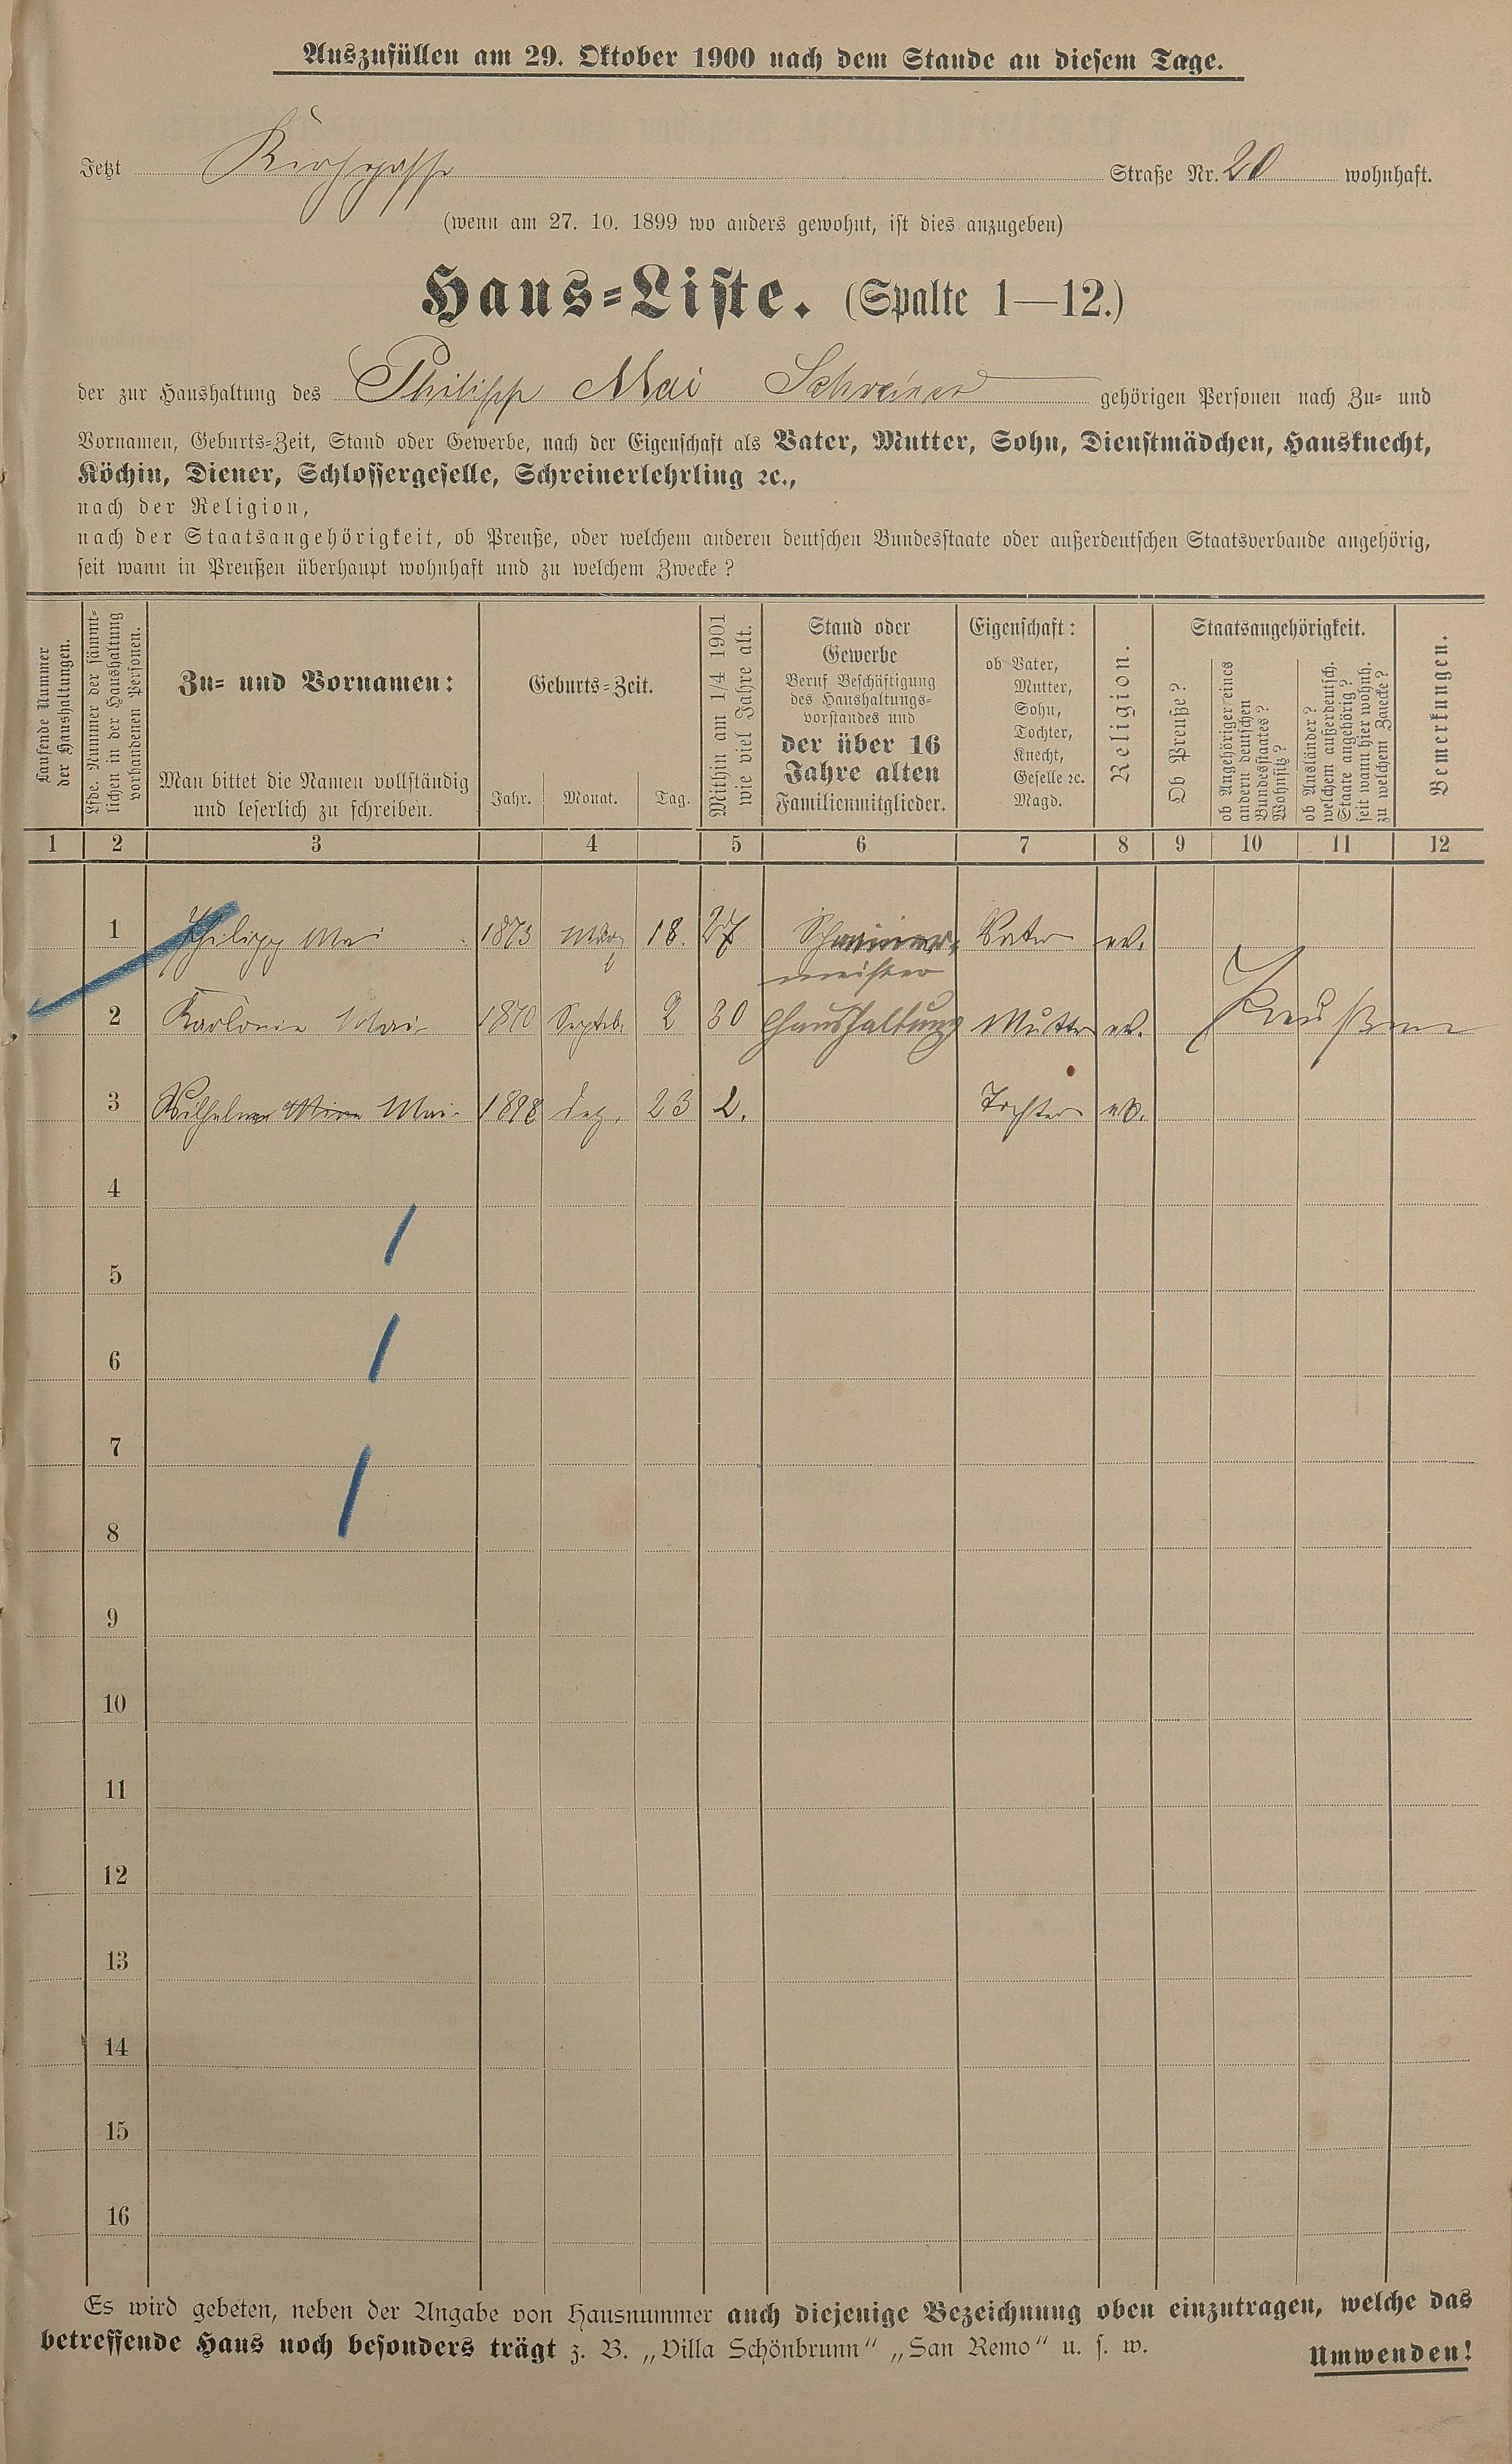 Auszufüllen am 29. Oktober 1900 nach dem Stande an diesem Tage.
Jetzt Kirchgasse Straße Nr. 20 wohnhaft.
(wenn am 27. 10. 1899 wo anders gewohnt, ist dies anzugeben)
Haus=Liste. (Spalte 1—12.)
der zur Haushaltung des Philipp Mai Schreiner gehörigen Personen nach Zu= und
Vornamen, Geburts=Zeit, Stand oder Gewerbe, nach der Eigenschaft als Vater, Mutter, Sohn, Dienstmädchen, Hausknecht,
Köchin, Diener, Schlossergeselle, Schreinerlehrling ꝛc.,
nach der Religion,
nach der Staatsangehörigkeit, ob Preuße, oder welchem anderen deutschen Bundesstaate oder außerdeutschen Staatsverbande angehörig,
seit wann in Preußen überhaupt wohnhaft und zu welchem Zwecke?
Laufende Nummer
der Haushaltungen.
Lfde. Nummer der sämmt=
lichen in der Haushaltung
vorhandenen Personen.
Zu= und Vornamen:
Man bittet die Namen vollständig
und leserlich zu schreiben.
Geburts=Zeit.
Jahr. Monat. Tag.
Mithin am 1/4 1901
wie viel Jahre alt.
Stand oder
Gewerbe
Beruf Beschäftigung
des Haushaltungs=
vorstandes und
der über 16
Jahre alten
Familienmitglieder.
Eigenschaft:
ob Vater,
Mutter,
Sohn,
Tochter,
Knecht,
Geselle ꝛc.
Magd.
Religion.
Staatsangehörigkeit.
Ob Preuße?
ob Angehöriger eines
andern deutschen
Bundesstaates?
Wohnsitz?
ob Ausländer?
welchem außerdeutsch.
Staate angehörig?
seit wann hier wohnh.
zu welchem Zwecke?
Bemerkungen.
1 2 3 4 5 6 7 8 9 10 11 12
1 Philipp Mai 1873 März 18. 27 Schreiner- Vater ev.
meister
2 Karoline Mai 1870 Septeb. 2 30 Haushaltung Mutter ev. Preußen
3 Wilhelmine Mai 1898 Dez. 23 2. Tochter ev.
4
5
6
7
8
9
10
11
12
13
14
15
16
Es wird gebeten, neben der Angabe von Hausnummer auch diejenige Bezeichnung oben einzutragen, welche das
betreffende Haus noch besonders trägt z. B. „Villa Schönbrunn“ „San Remo“ u. s. w.
Umwenden!